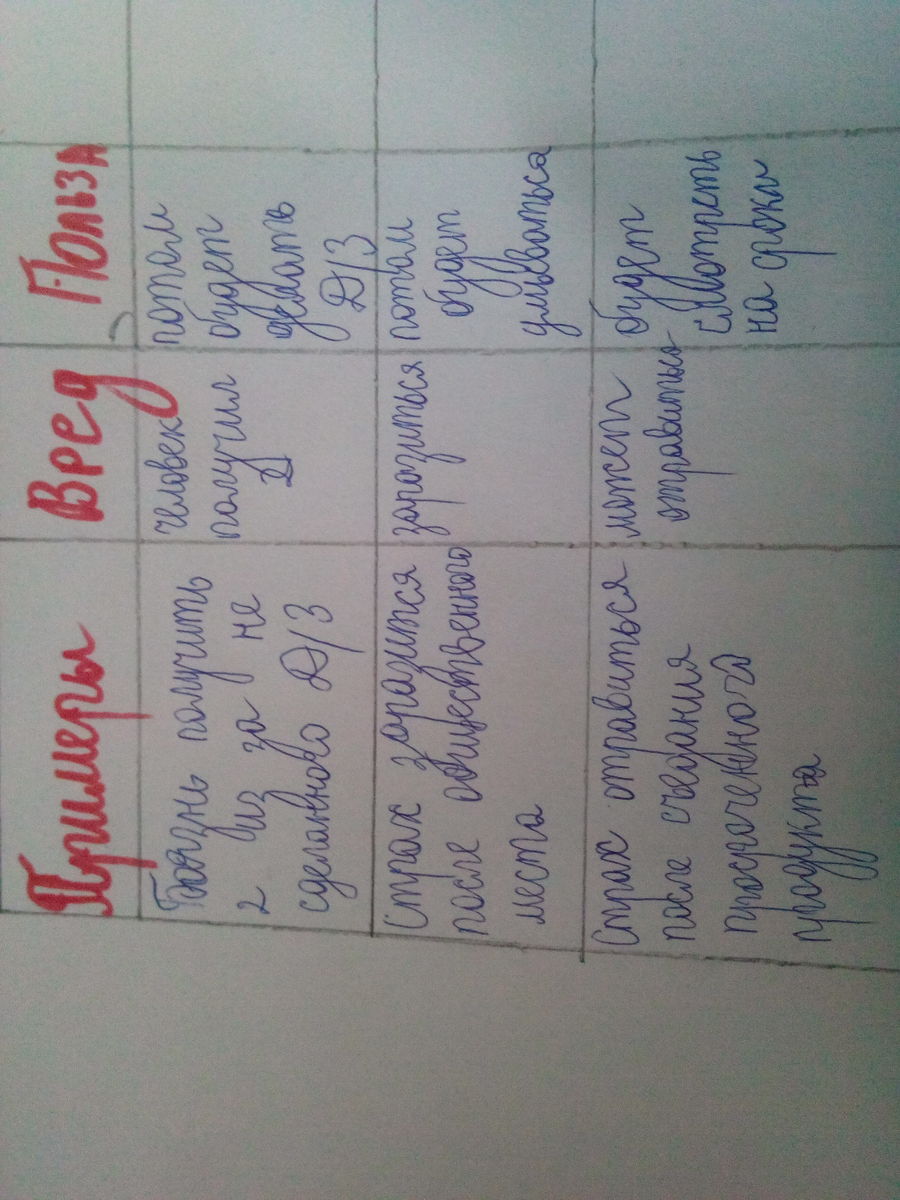 Примеры
Вред
Польза
Боязнь получить
2 из за не
сделанного Д/З
человек
получил
2
потом
будет
делать
Д/З
Страх заразится
после общественного
места
заразиться
потом
будет
умываться
Страх отравиться
после съедания
просроченного
продукта
может
отравиться
будет
смотреть
на сроки